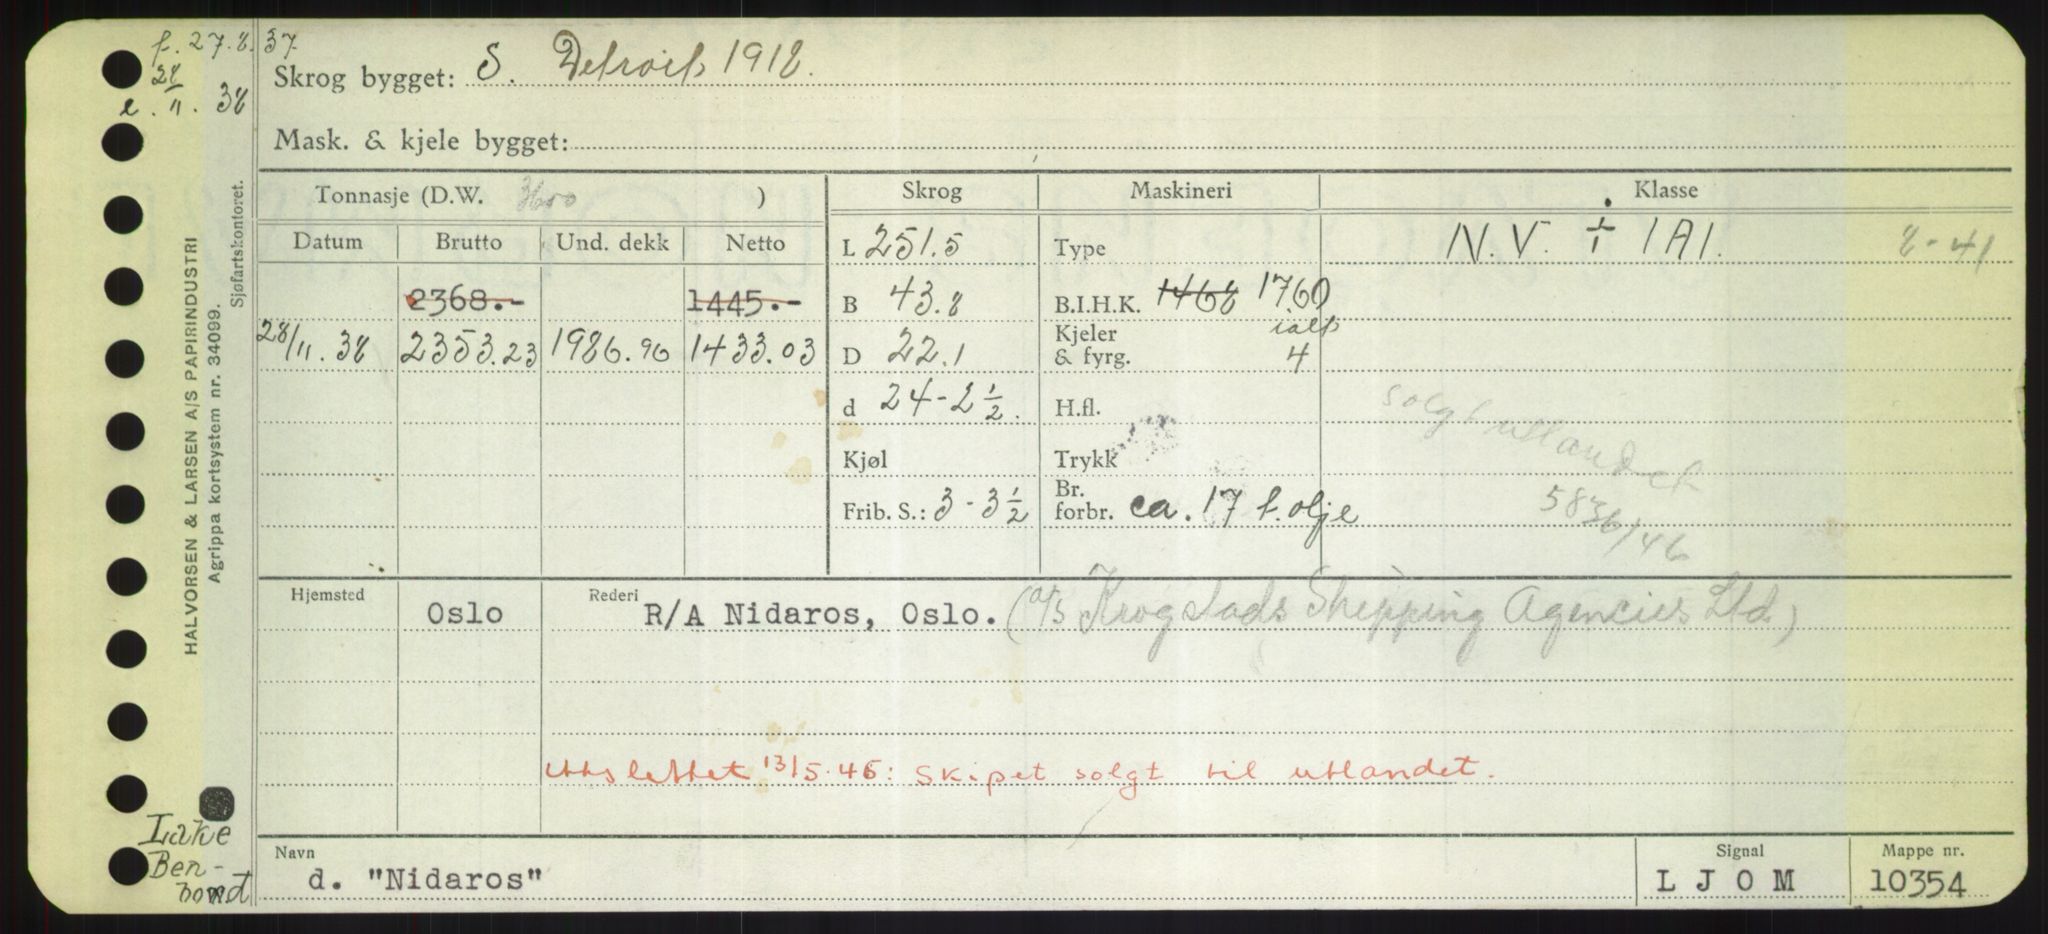 f. 27.8.37.
28
e. 11. 38
Skrog bygget: S. Detroit 1918.
Mask. & kjele bygget:
HALVORSEN & LARSEN A/S PAPIRINDUSTRI
Agrippa kortsystem nr. 34099.
Sjøfartskontoret.
Tonnasje (D.W. 3600 ) Skrog Maskineri Klasse
Datum Brutto Und. dekk Netto
L 251.5 Type N.V. + 1A1. 8-41
2368.- 1445.- B 43.8 B.I.H.K. 1468 1760
ialt
28/11.38 2353.23 1986.96 1433.03 D 22.1 Kjeler & fyrg. 4
d 24-2½. H.fl.
solgt utlandet
Kjøl Trykk
5836/46
Frib. S.: 3-3½ Br. forbr. ca. 17 t. olje
Hjemsted Oslo Rederi R/A Nidaros, Oslo. (A/S Krogstads Shipping Agencies Ltd.)
Utslettet 13/5.46: Skipet solgt til utlandet.
Lake
Ben-
Navn Signal Mappe nr.
d. "Nidaros" L J O M 10354